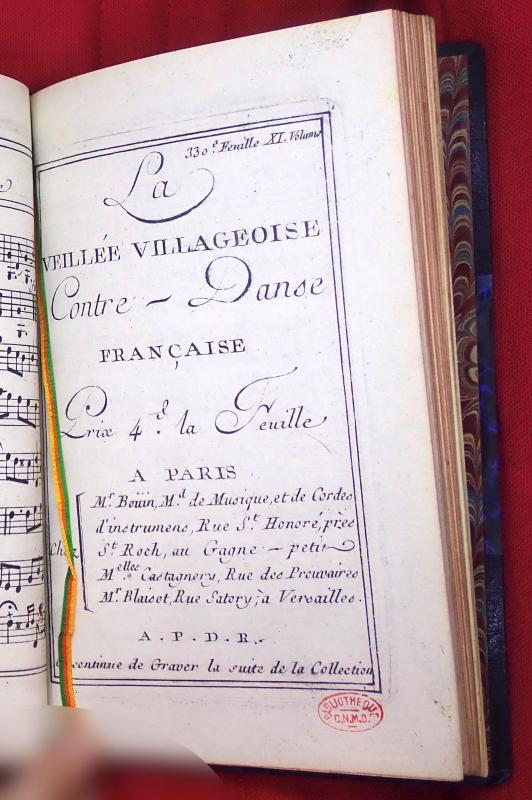 330.e Feuille XI. Volume
La
VEILLÉE VILLAGEOISE
Contre - Danse
FRANÇAISE
Prix 4.s la Feuille
A PARIS
Mr. Boüin, Md. de Musique, et de Cordes
d'instrumens, Rue St. Honoré, près
Chez
St. Roch, au Gagne - petit
Melles. Castagnery, Rue des Prouvaires
Mr. Blaisot, Rue Satory, à Versailles.
A. P. D. R.
continue de Graver la suite de la Collection
BIBLIOTHÈQUE
C.N.M.D.